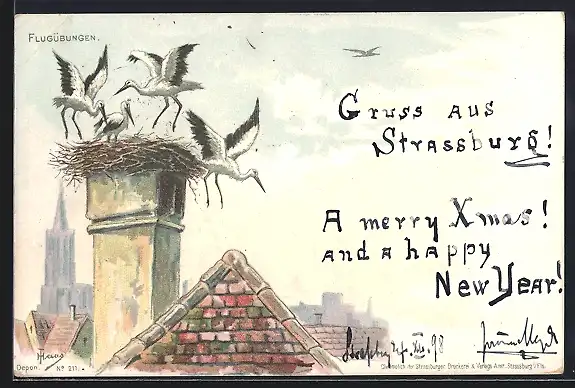 FLUGÜBUNGEN.
Gruss aus
Strassburg!
A merry Xmas!
and a happy
New Year!
XII. 98
Depon. No 211.
der Strassburger Druckerei & Verlags Anst. Strassburg i/Els.